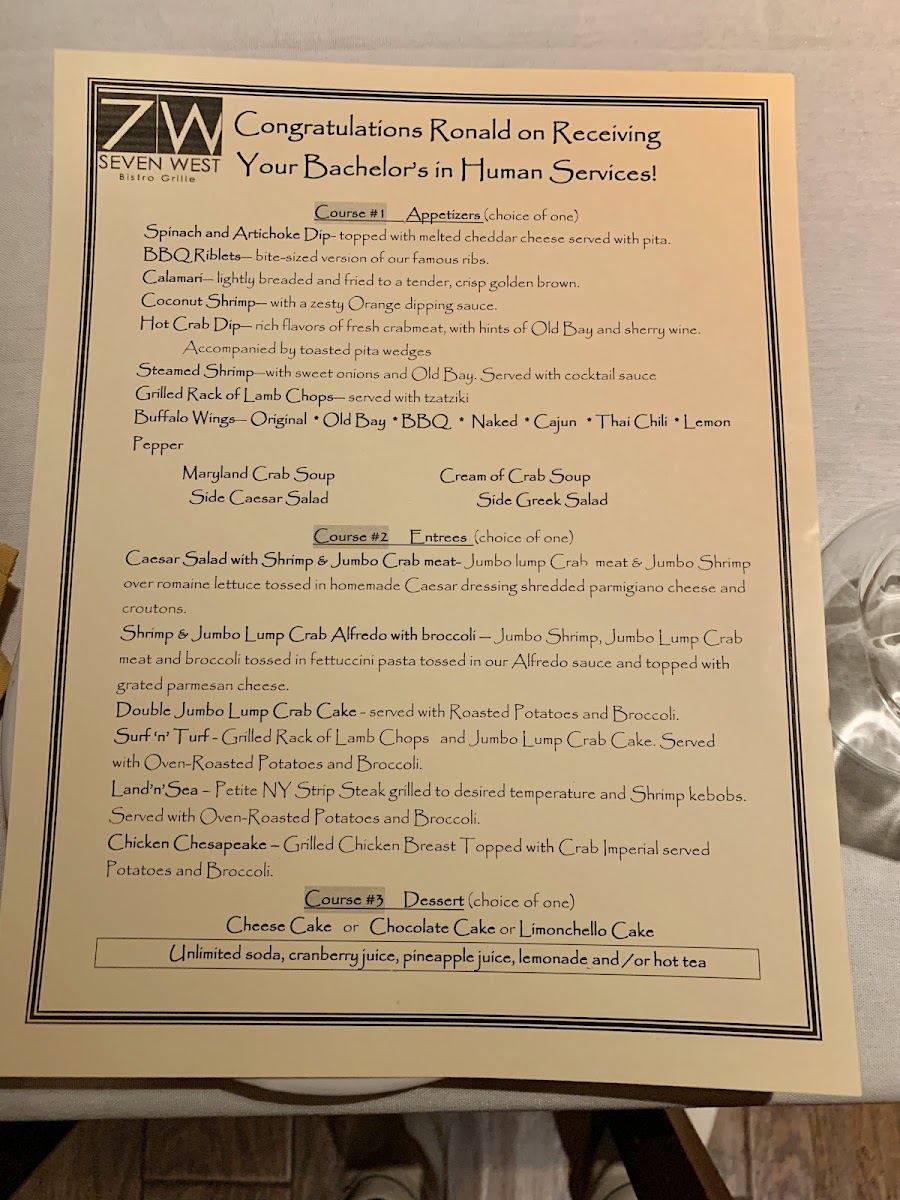 7W
SEVEN WEST
Bistro Grille
Congratulations Ronald on Receiving
Your Bachelor's in Human Services!
Course #1 Appetizers (choice of one)
Spinach and Artichoke Dip- topped with melted cheddar cheese served with pita.
BBQ Riblets— bite-sized version of our famous ribs.
Calamari— lightly breaded and fried to a tender, crisp golden brown.
Coconut Shrimp— with a zesty Orange dipping sauce.
Hot Crab Dip— rich flavors of fresh crabmeat, with hints of Old Bay and sherry wine.
Accompanied by toasted pita wedges
Steamed Shrimp—with sweet onions and Old Bay. Served with cocktail sauce
Grilled Rack of Lamb Chops— served with tzatziki
Buffalo Wings— Original * Old Bay * BBQ * Naked * Cajun * Thai Chili * Lemon
Pepper
Maryland Crab Soup Cream of Crab Soup
Side Caesar Salad Side Greek Salad
Course #2 Entrees (choice of one)
Caesar Salad with Shrimp & Jumbo Crab meat- Jumbo lump Crab meat & Jumbo Shrimp
over romaine lettuce tossed in homemade Caesar dressing shredded parmigiano cheese and
croutons.
Shrimp & Jumbo Lump Crab Alfredo with broccoli — Jumbo Shrimp, Jumbo Lump Crab
meat and broccoli tossed in fettuccini pasta tossed in our Alfredo sauce and topped with
grated parmesan cheese.
Double Jumbo Lump Crab Cake - served with Roasted Potatoes and Broccoli.
Surf 'n' Turf - Grilled Rack of Lamb Chops and Jumbo Lump Crab Cake. Served
with Oven-Roasted Potatoes and Broccoli.
Land'n'Sea – Petite NY Strip Steak grilled to desired temperature and Shrimp kebobs.
Served with Oven-Roasted Potatoes and Broccoli.
Chicken Chesapeake – Grilled Chicken Breast Topped with Crab Imperial served
Potatoes and Broccoli.
Course #3 Dessert (choice of one)
Cheese Cake or Chocolate Cake or Limonchello Cake
Unlimited soda, cranberry juice, pineapple juice, lemonade and /or hot tea